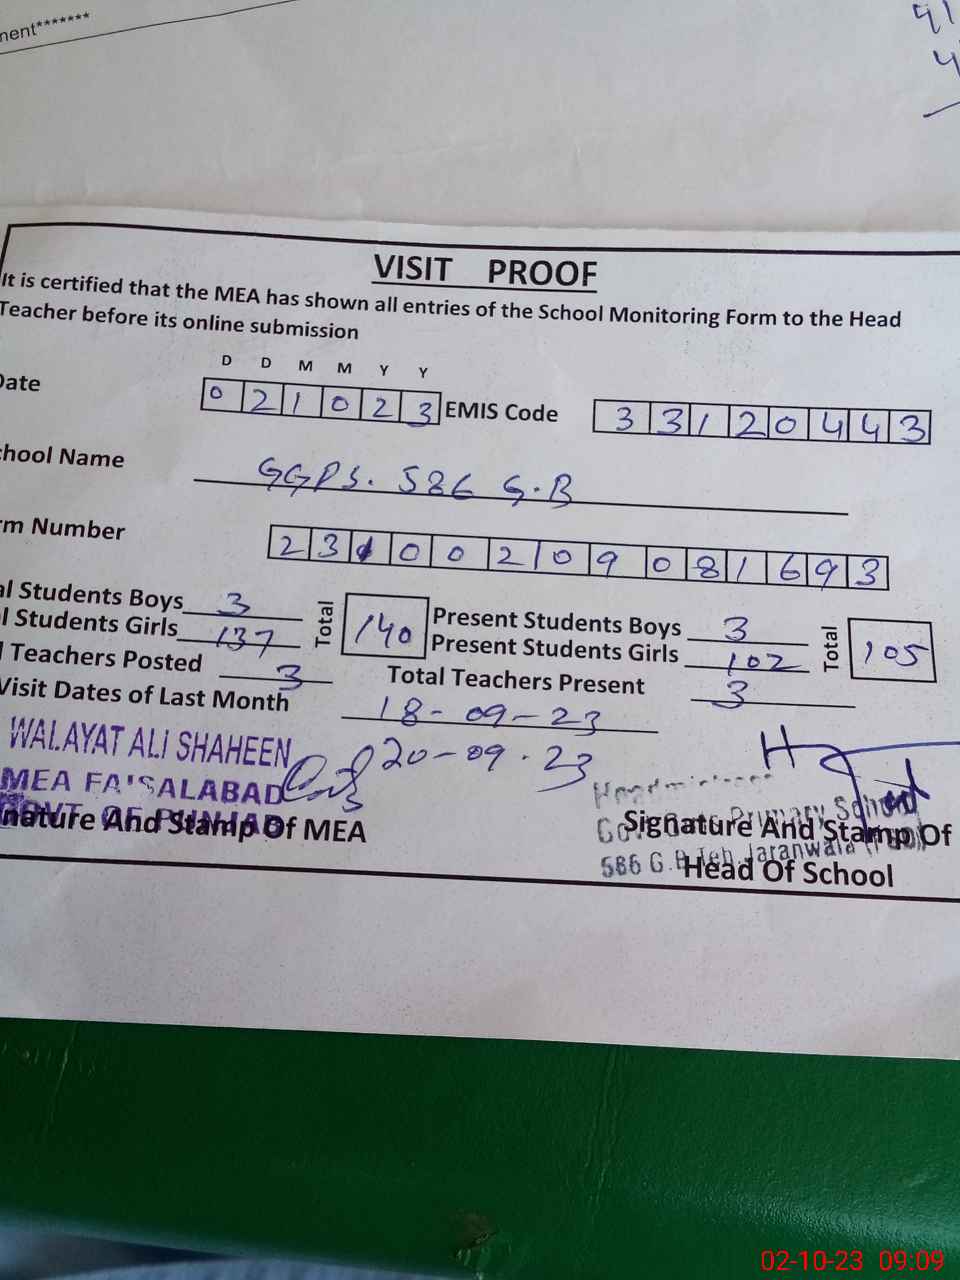 ment*******
VISIT PROOF
It is certified that the MEA has shown all entries of the School Monitoring Form to the Head
Teacher before its online submission
D D M M Y Y
Date 0 2 1 0 2 3 EMIS Code 3 3 1 2 0 4 4 3
chool Name GGPS. 586 G.B
rm Number 2 3 1 0 0 2 0 9 0 8 1 6 9 3
al Students Boys 3 Total 140 Present Students Boys 3 Total 105
l Students Girls 137 Present Students Girls 102
l Teachers Posted 3 Total Teachers Present 3
Visit Dates of Last Month 18-09-23
20-09-23
WALAYAT ALI SHAHEEN
MEA FAISALABAD
GOVT OF PUNJAB
nature And Stamp Of MEA
Primary School
586 G.B Teh. Jaranwala
Signature And Stamp Of
Head Of School
02-10-23 09:09